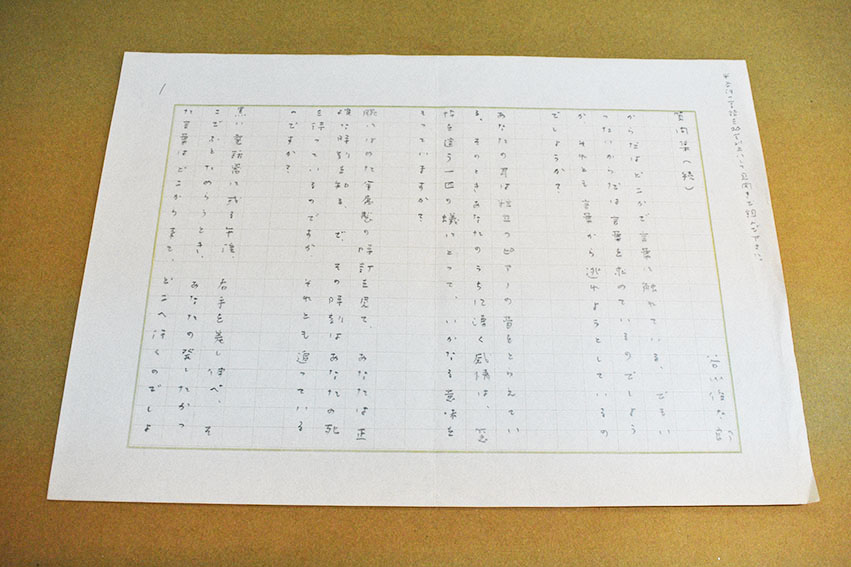 質問集(続)
谷川俊太郎
からだはどこかで言葉に触れている、だがい
ったいからだは言葉を求めているのでしょう
か それとも言葉から逃れようとしているの
でしょうか?
あなたの耳は のピアノの音をとらえてい
る、そのときあなたのうちに湧く感情は、窓
枠を這う一匹の蟻にとって、いかなる意味を
もっていますか?
腕にはめた金属製の時計を見て、あなたは正
確な時刻を知る、で、その時刻はあなたの死
を待っているのですか それとも遡っている
のですか?
黒い電話器に残る 右手を差し伸べ、そ
こでふとためらうとき、あなたの発したかっ
た言葉はどこから来て、どこへ行くのでしょ
1